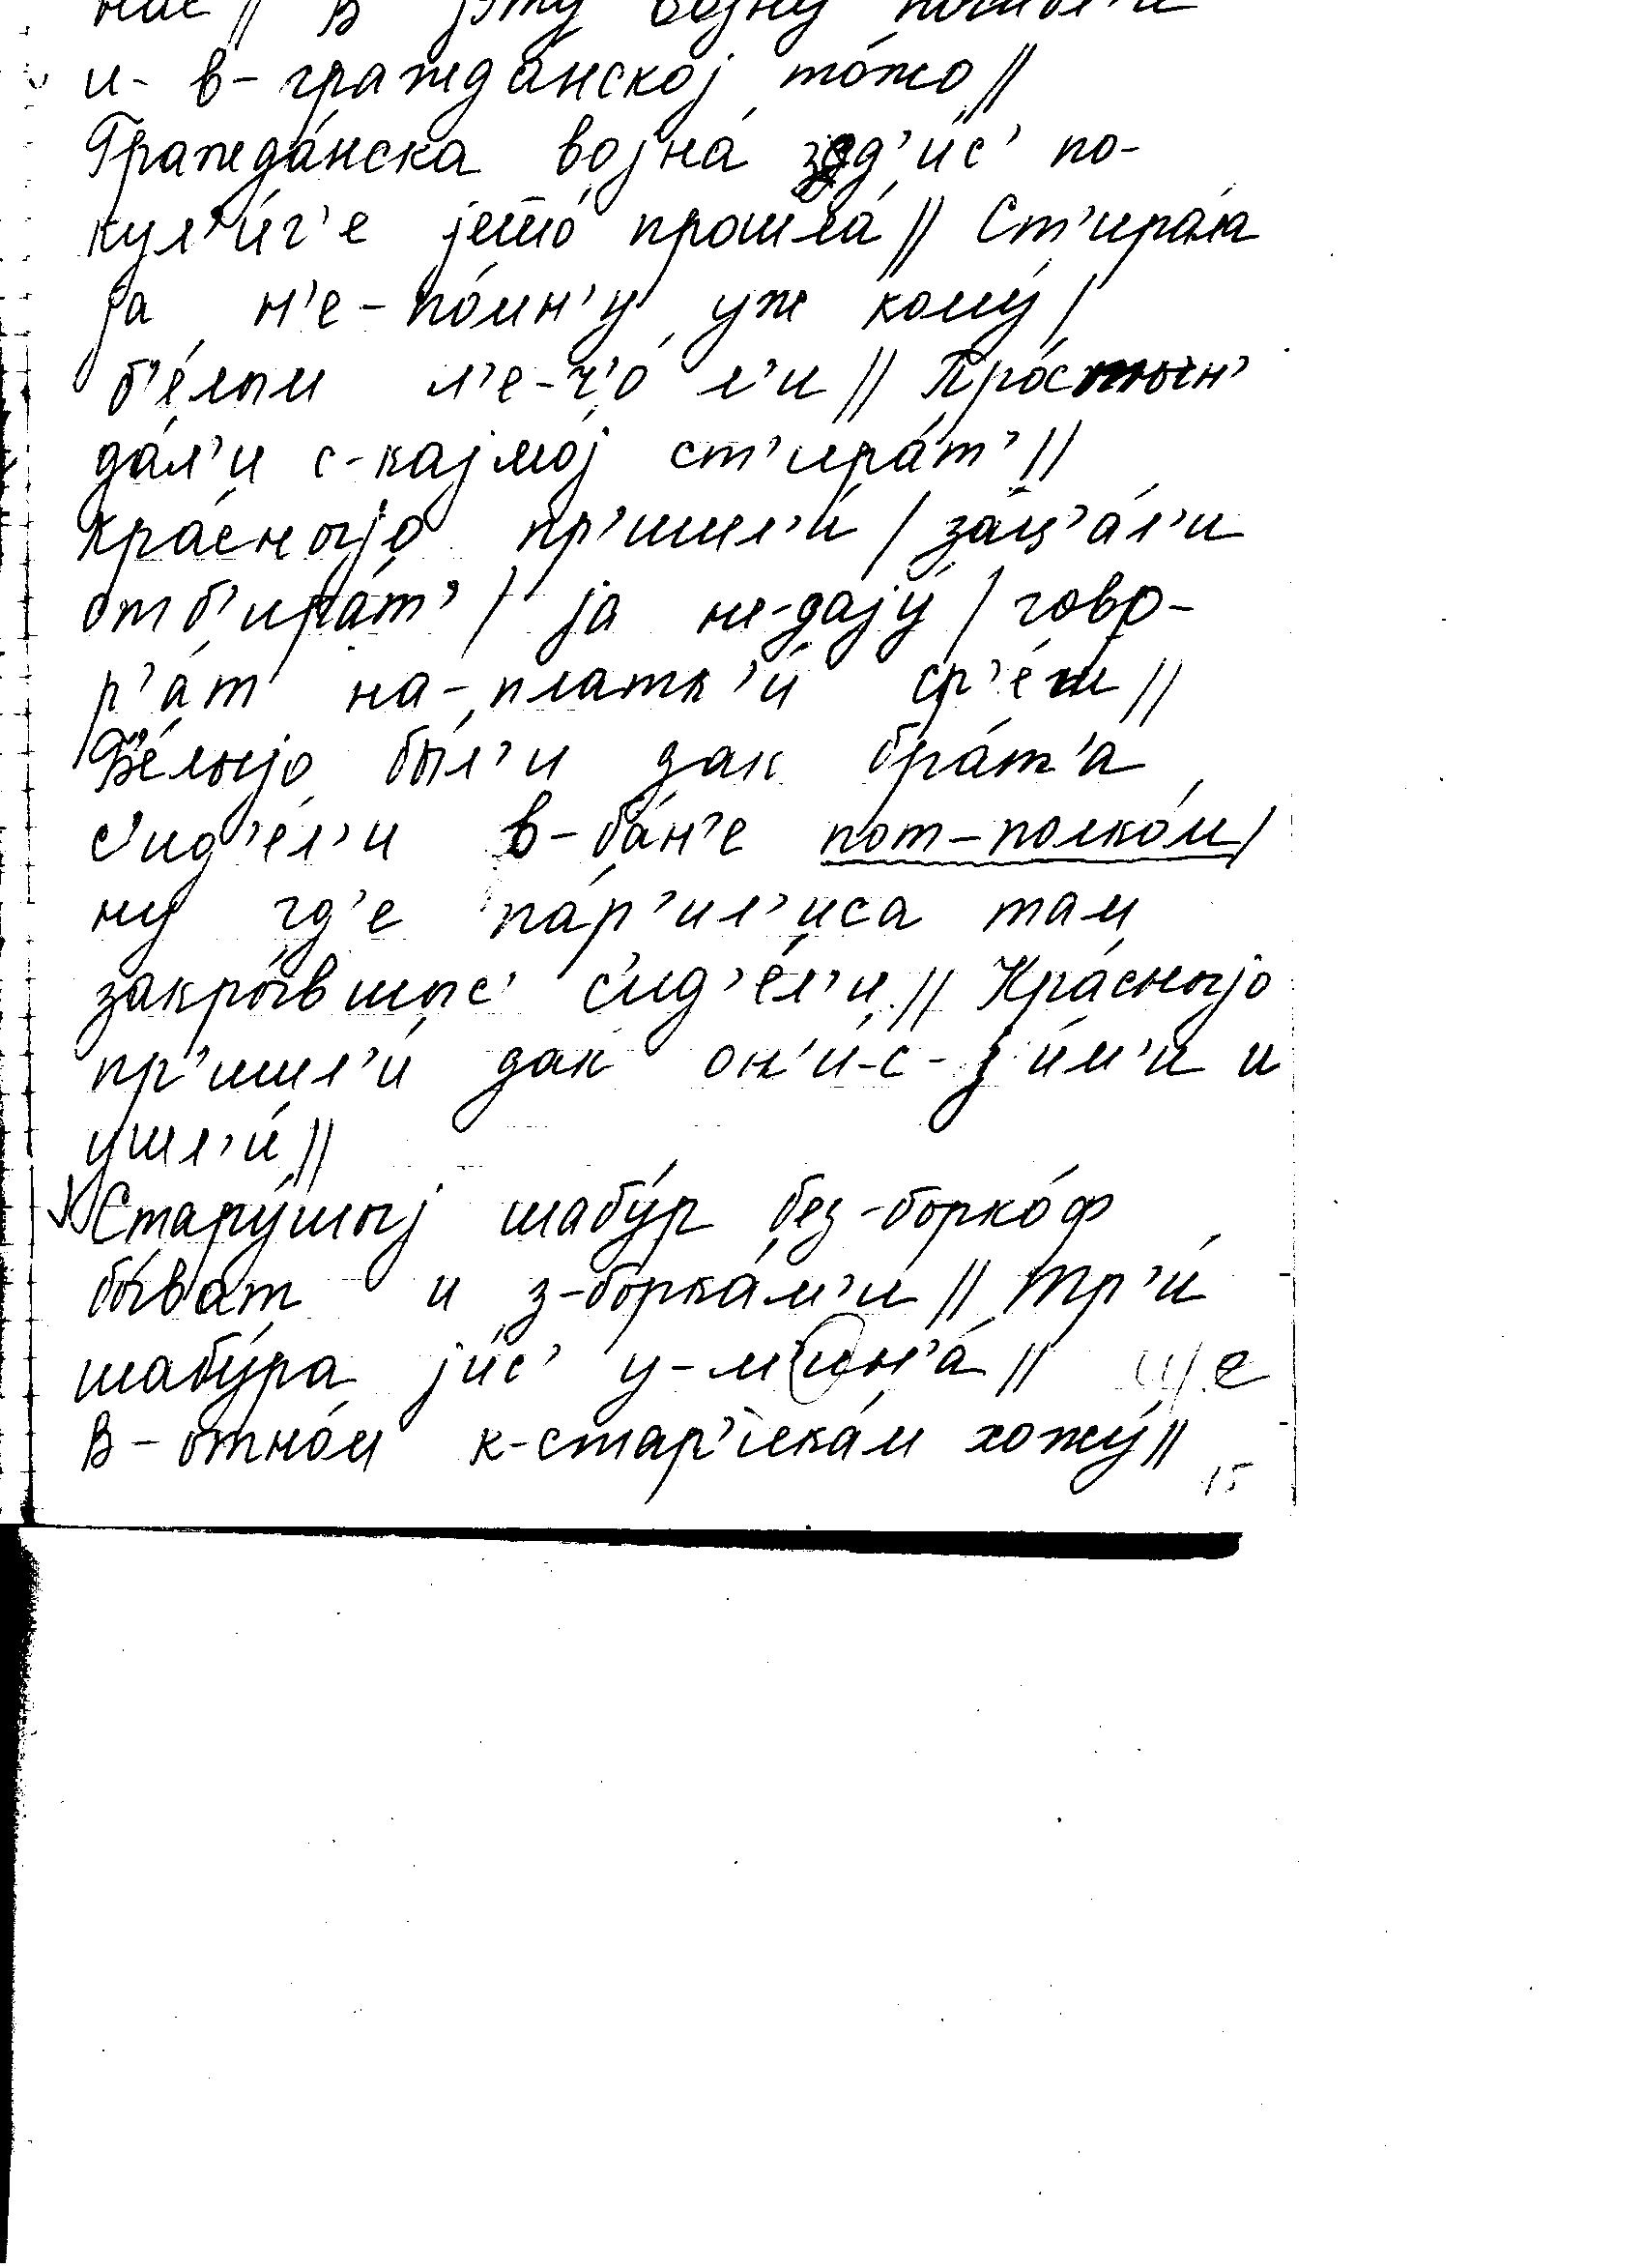 нас // В јэту војну погибл'и
и- в-гражда́нској то́жо //
Гражда́нска војна́ зд'ис' по-
кул'и́г'е јешо́ прошла́ // Ст'ира́ла
ја н'е-по́мн'у уж кому́ /
б'е́лым л'е-ч'о́ л'и // Про́стын'
да́л'и с-кајмо́ј ст'ира́т' //
кра́сныјо пр'ишл'и́ / зац'а́л'и
отб'ира́т' / ја не-дају́ / гово-
р'а́т на-платк'и́ ср'е́ш //
Б'е́лыјо бы́л'и дак бра́т'а
с'ид'е́л'и в-ба́н'е пот-полко́м /
ну гд'е па́р'ил'иса там
закры́вшыс' с'ид'е́л'и // Кра́сныјо
пр'ишл'и́ дак он'и́-с-ји́м'и и
ушл'и́ //
Стару́шыј шабу́р без-борко́ф
быва́т и з-борка́м'и // Тр'и́
шабу́ра јис' у-мин'а́ // и/е
В-отно́м к-стар'ика́м хожу́ //
15